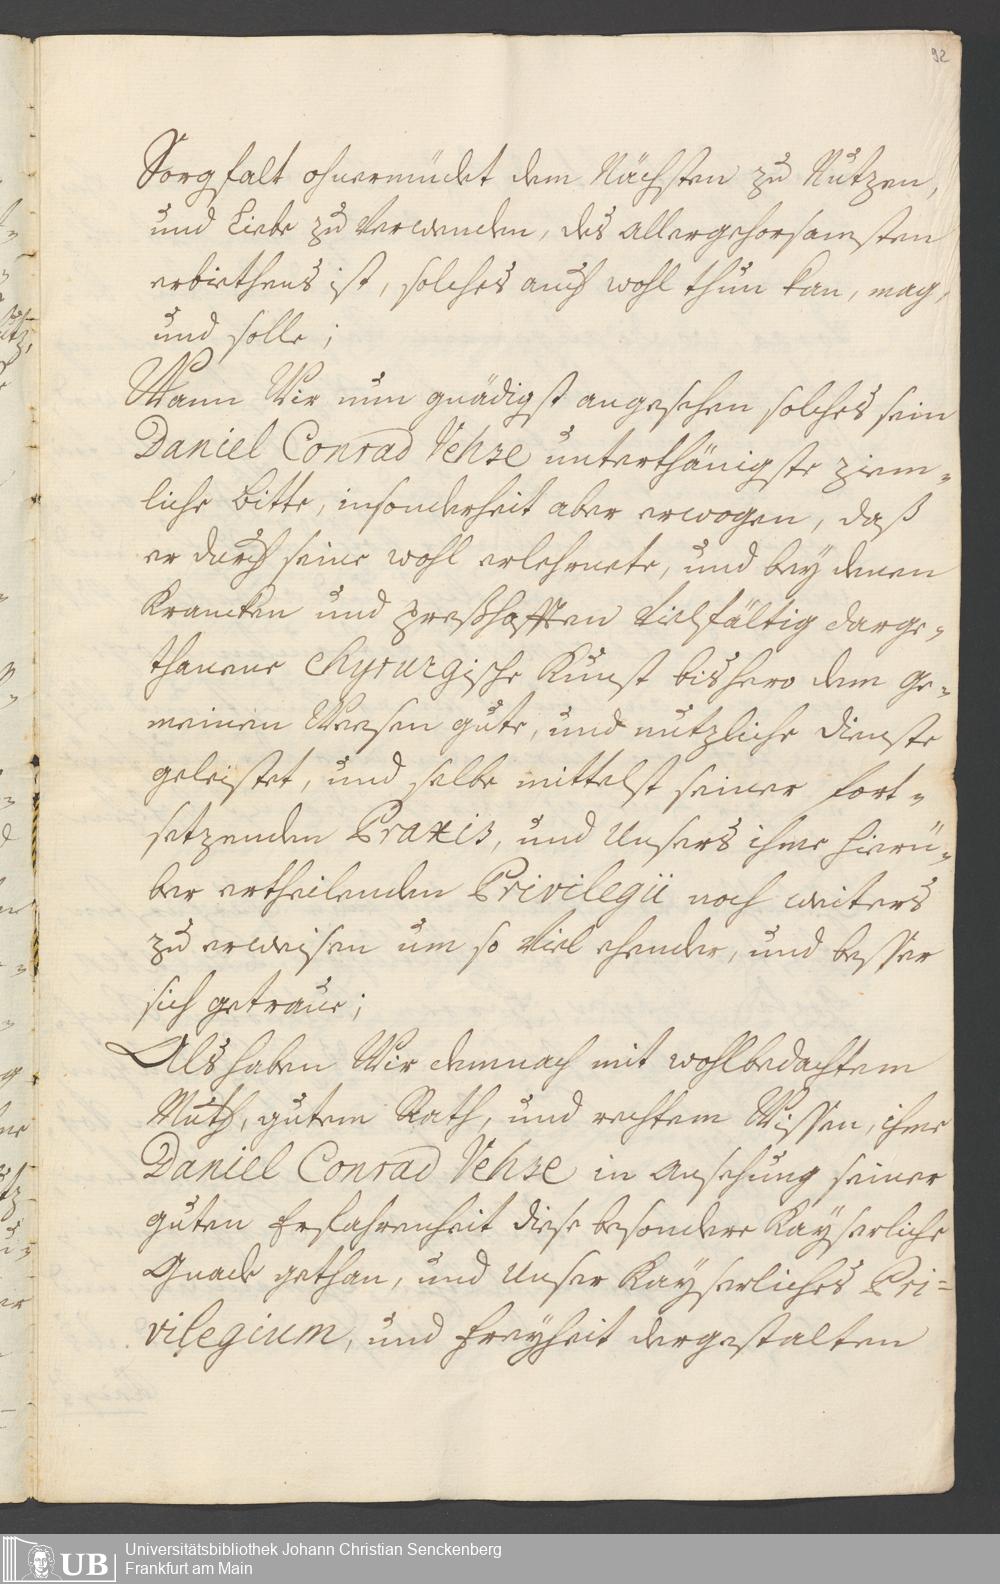 92
Sorgfalt ohnermüdet dem Nächsten zu Nutzen,
und Liebe zu verwenden, des allergehorsamsten
erbiethens ist, solches auch wohl thun kan, mag,
und solle;
Wann Wir nun gnädigst angesehen solches sein
Daniel Conrad Vehse unterthänigste ziem-
liche Bitte, insonderheit aber erwogen, daß
er durch seine wohl erlehrnete, und bey denen
Krancken und presshafften vielfältig darge-
thanene Chyrurgische Kunst bishero dem ge-
meinen Weesen gute, und nutzliche Dienste
geleistet, und selbe mittelst seiner fort-
setzenden Praxis, und Unsers ihme hierü-
ber ertheilenden Privilegii noch weiters
zu erweisen um so viel ehender, und besser
sich getraue;
Als haben Wir demnach mit wohlbedachtem
Muth, gutem Rath, und rechtem Wissen, ihme
Daniel Conrad Vehse in Ansehung seiner
guten Erfahrenheit diese besondere Kayserliche
Gnade gethan, und Unser Kayserliches Pri-
vilegium, und Freyheit dergestalten
UB
Universitätsbibliothek Johann Christian Senckenberg
Frankfurt am Main